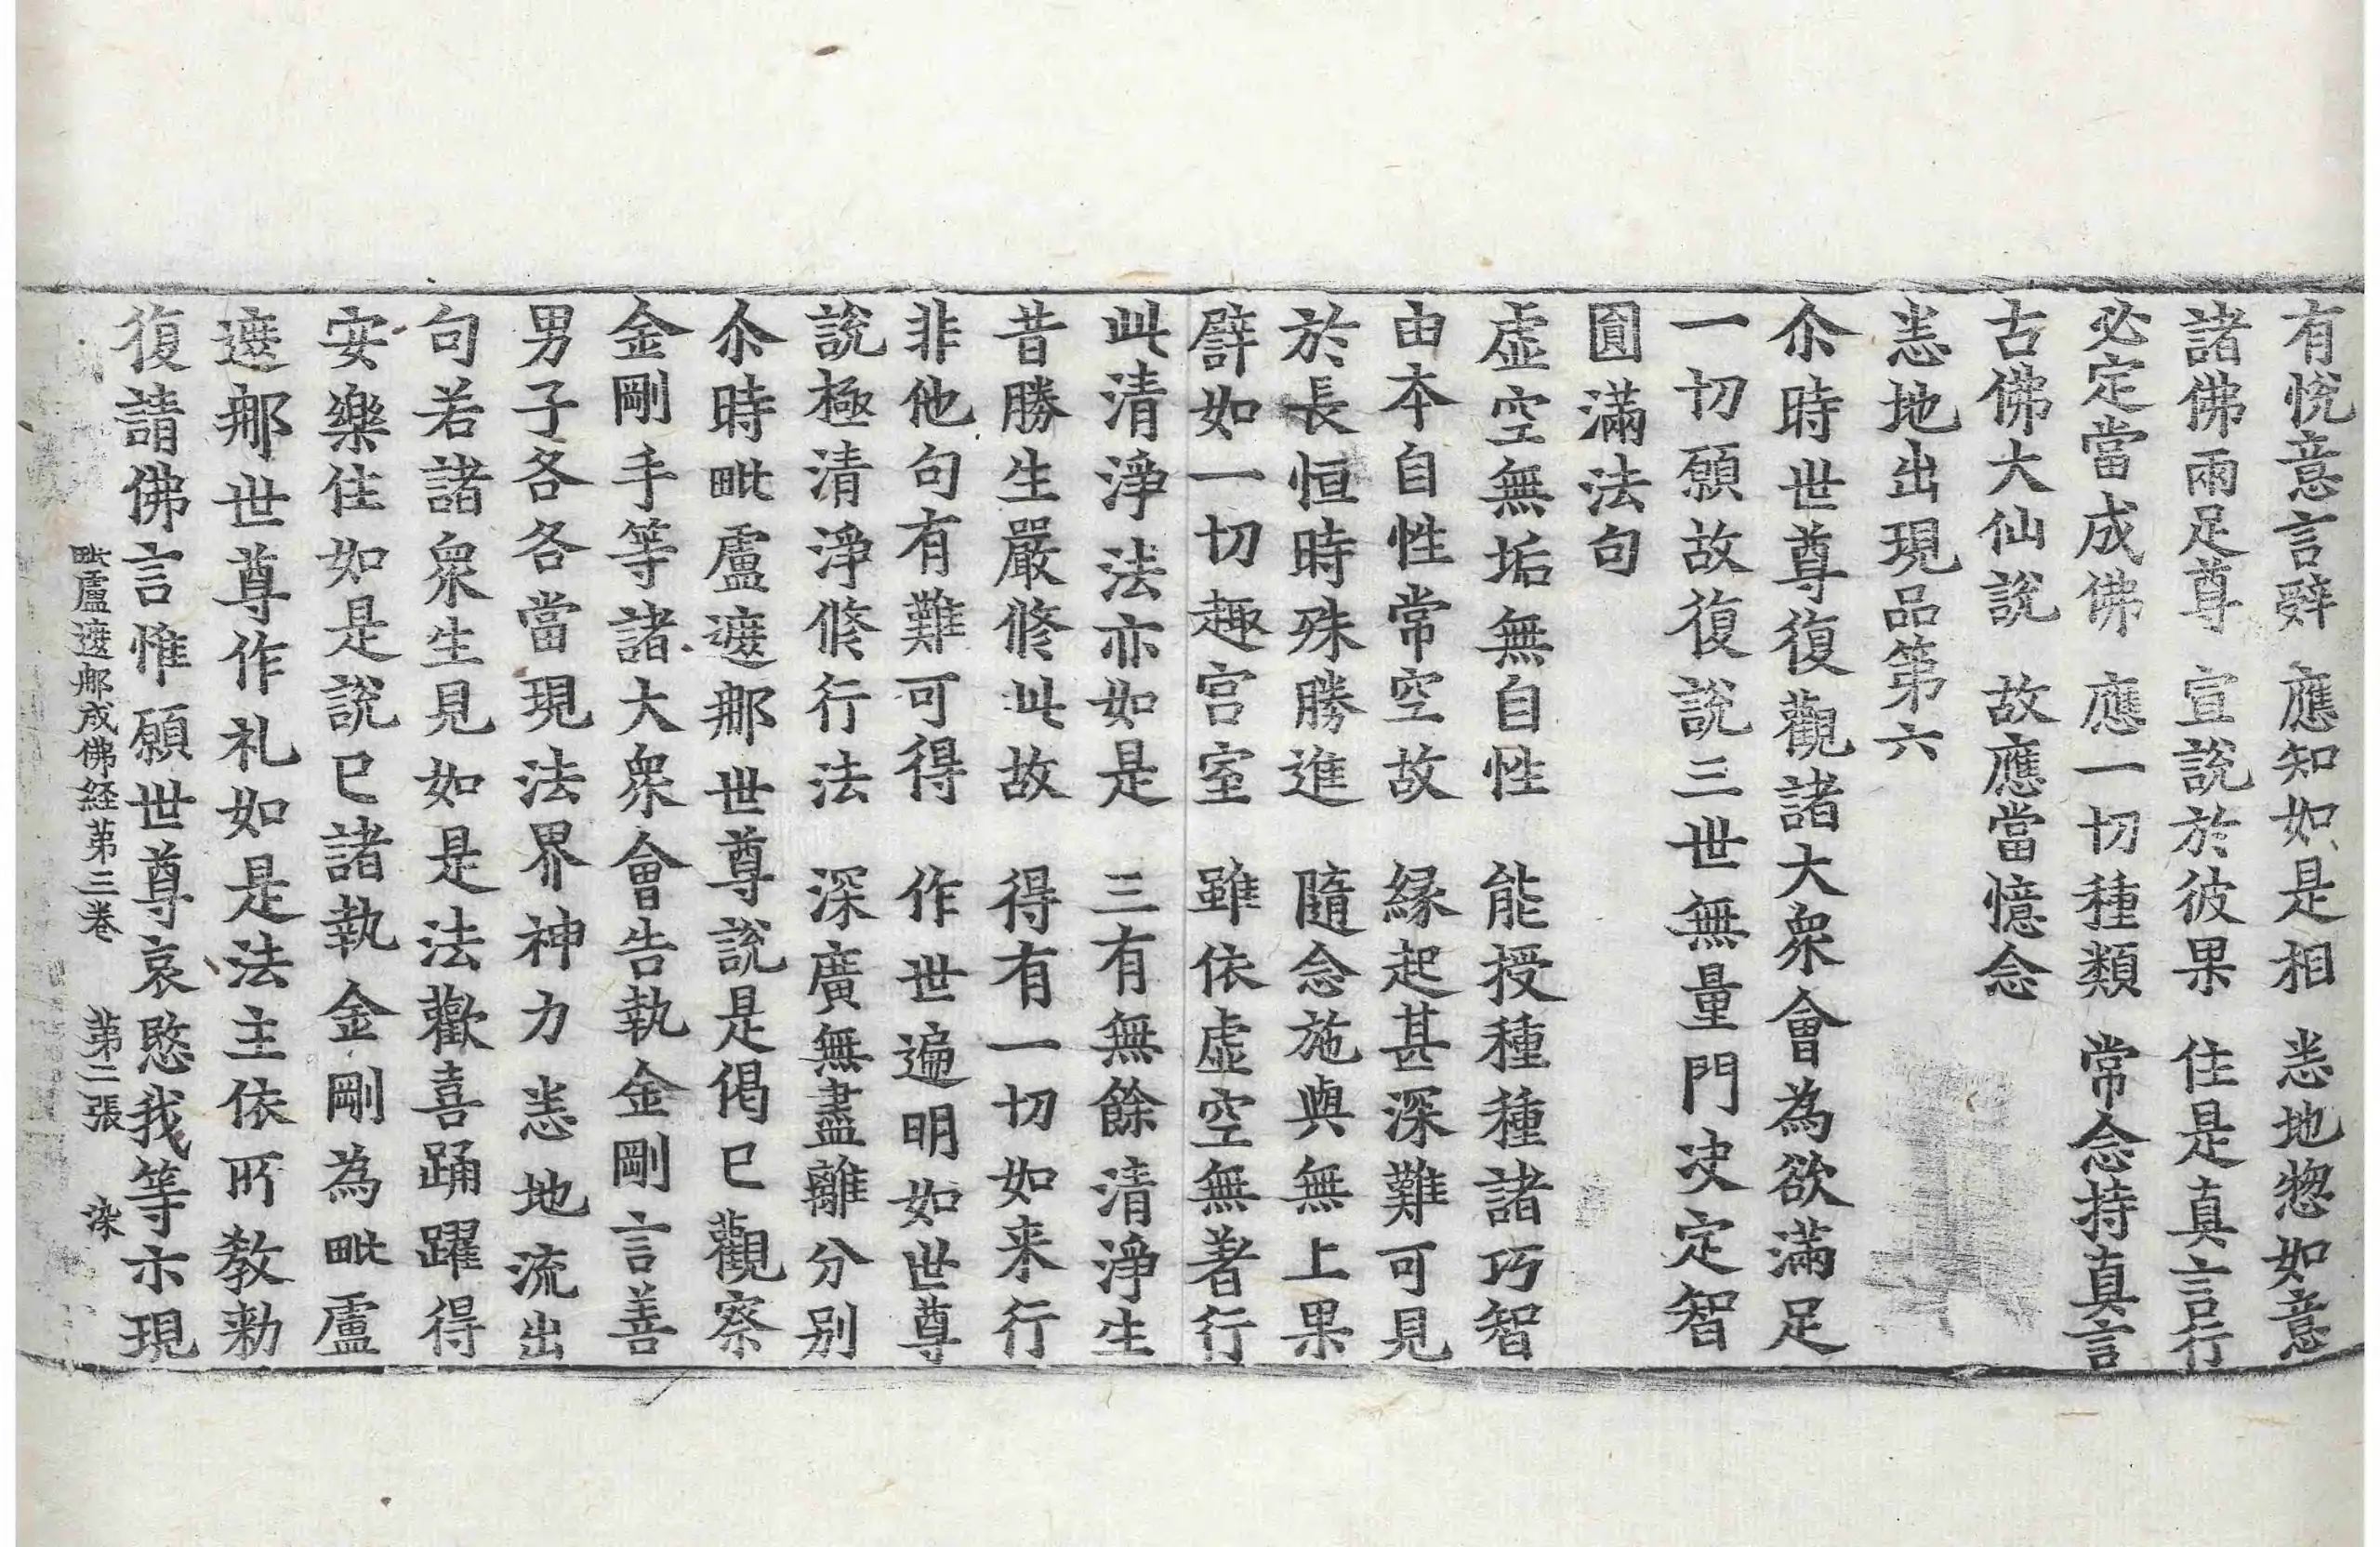 有悅意言辭　應知如是相　悉地惣如意
諸佛兩足尊　宣說於彼果　住是真言行
必定當成佛　應一切種類　常念持真言
古佛大仙說　故應當憶念
悉地出現品第六
尒時世尊復觀諸大衆會為欲滿足
一切願故復說三世無量門決定智
圓滿法句
虛空無垢無自性　能授種種諸巧智
由本自性常空故　緣起甚深難可見
於長恒時殊勝進　隨念施與無上果
譬如一切趣宮室　雖依虛空無著行
此清淨法亦如是　三有無餘清淨生
昔勝生嚴修此故　得有一切如来行
非他句有難可得　作世遍明如世尊
說極清淨修行法　深廣無盡離分別
尒時毗盧遮那世尊說是偈已觀察
金剛手等諸大衆會告執金剛言善
男子各各當現法界神力悉地流出
句若諸衆生見如是法歡喜踊躍得
安樂住如是說已諸執金剛為毗盧
遮那世尊作礼如是法主依所教勑
復請佛言惟願世尊哀愍我等示現
毗盧遮那成佛経苐三卷　苐二張　染